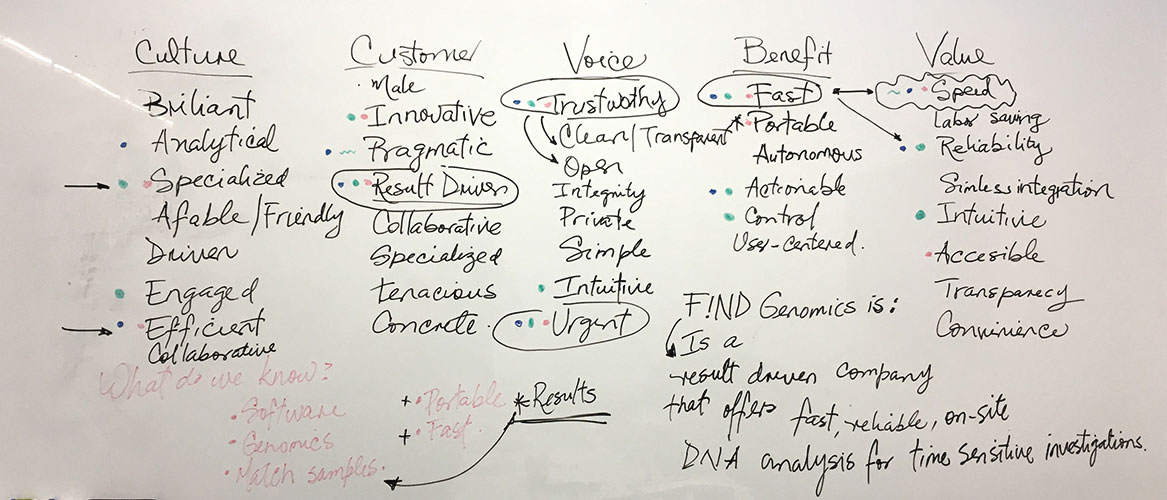 Culture
Briliant
Analytical
Specialized
Afable/Friendly
Driven
Engaged
Efficient
Collaborative
Customer
Male
Innovative
Pragmatic
Result Driven
Collaborative
Specialized
tenacious
Concrete
Voice
Trustworthy
Clean/Transparent
Open
Integrity
Private
Simple
Intuitive
Urgent
Benefit
Fast
Portable
Autonomous
Actionable
Control
User-centered.
Value
Speed
Labor saving
Reliability
Simless integration
Intuitive
Accesible
Transparecy
Convinience
What do we know?
• Software
• Genomics
• Match samples.
+ • Portable
+ • Fast.
* Results
F!ND Genomics is:
Is a
result driven company
that offers fast, reliable, on-site
DNA analysis for time sensitive investigations.